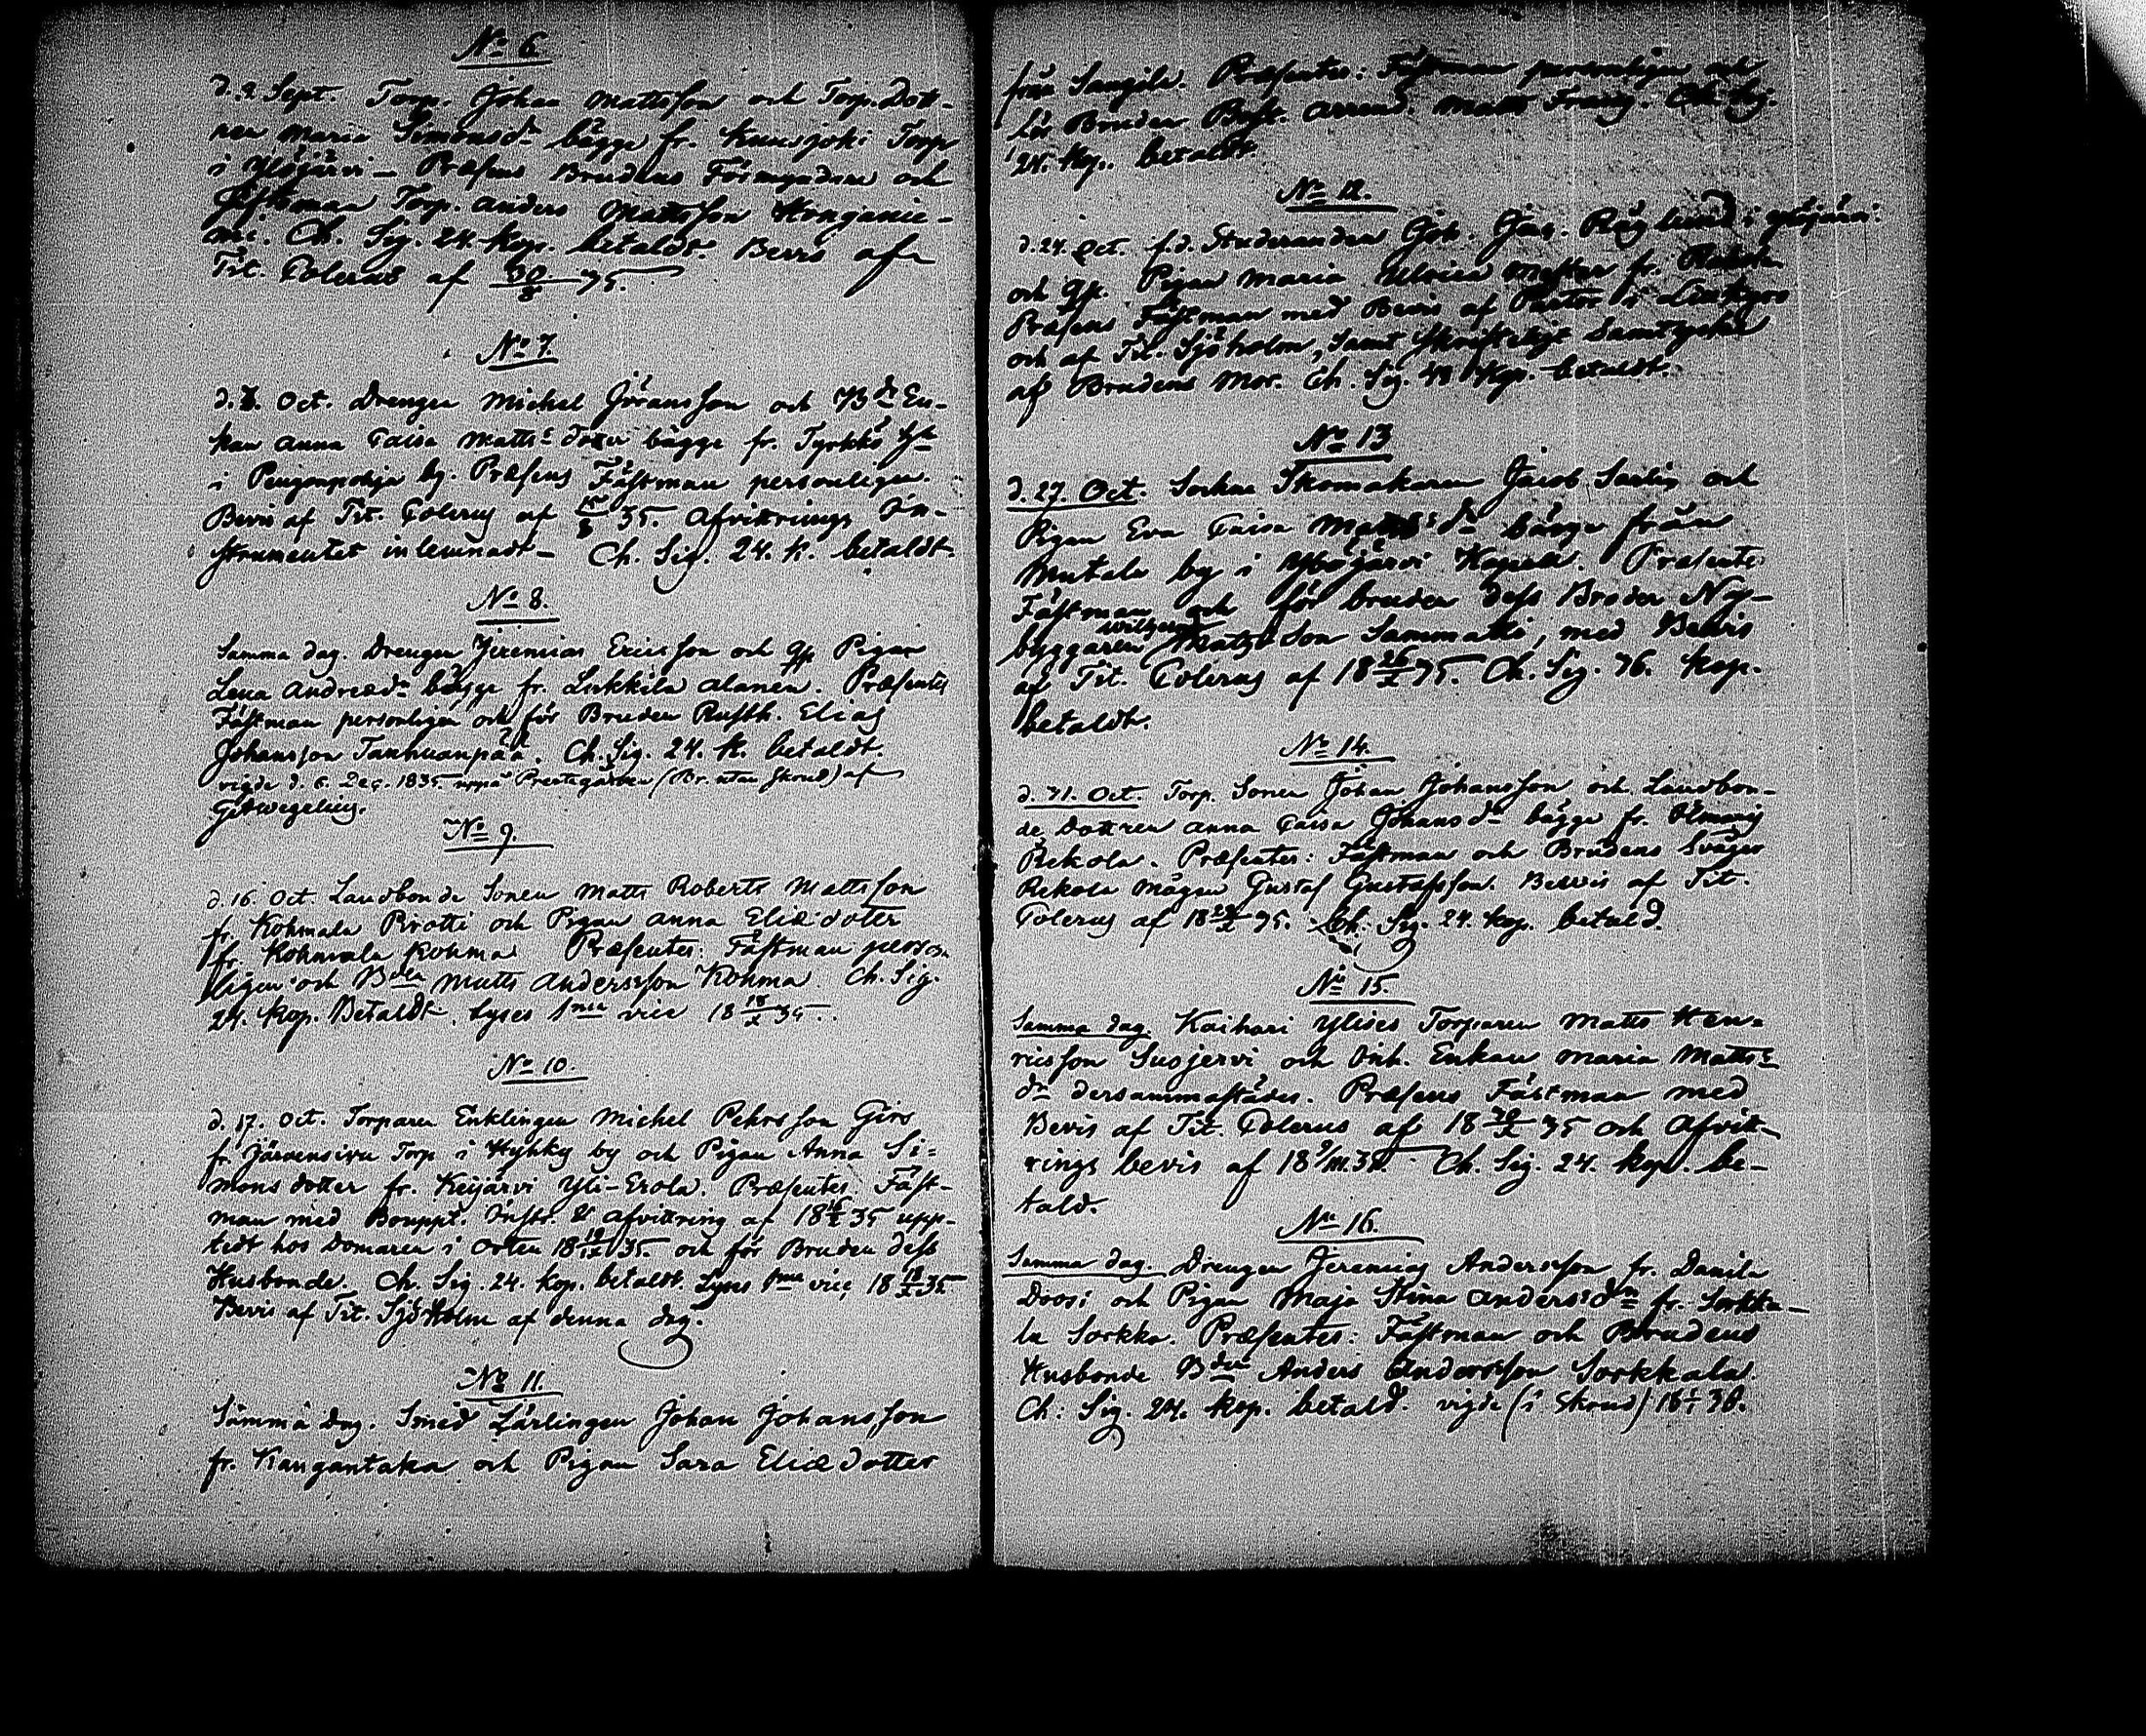 No 6.
d. 2 Sept. Torp. Johan Mattsson och Torp. Dott-
ren Maria Simonsdr bägge fr. Kuusjoki Torp
i Ylöjärvi – Præsens Brudens Förmyndare och
Fästman Torp. Anders Mattsson
Ch. Sig. 24 kop. betaldt. Bevis af
Tit. Polerus af 30/8 35.
No 7.
d. 7. Oct. Drengen Michel Jöransson och Bdr En-
kan Anna Caisa Matts dotter bägge fr. Tyrkkö
i Penjonpohja by. Præsens Fästman personligen.
Bevis af Tit. Polerus af 35. Afvittrings In-
strumentet inlemnadt – Ch. Sig. 24. k. betaldt.
No 8.
Samma dag. Drengen Jeremias Ericsson och qp Pigan
Lena Andreædr bägge fr. Lukkila Alanen. Præsentes
Fästman personligen och för Bruden Rusth. Elias
Johansson Tanhuanpää. Ch. Sig. 24. k. betaldt.
vigde d. 6. Dec. 1835 uppå Prestegården (Br. utan skrud) af
G. Avegelius.
No 9.
d. 16. Oct. Landbonde Sonen Matts Roberts Mattsson
fr. Kohmala Pirotti och Pigan Anna Eliædoter
fr. Kohmala Kohma Præsentes: Fästman person
ligen och Bden Matts Andersson Kohma. Ch. Sig.
24. kop. Betaldt. lyses 1ma vice 18 18/X 35.
No 10.
d. 17. Oct. Torparen Enklingen Michel Pehrsson Girs
fr. Järvensivu Torp i Hyhky by och Pigan Anna Si-
mons dotter fr. Keijärvi Yli-Erola. Præsentes. Fäst-
man med Bouppt. Instr. & afvittring af 18 16/X 35 upp-
tedt hos Domaren i Orten 18 35. och för Bruden dess
Husbonde. Ch. Sig. 24. kop. betaldt. Lyses 1ma vice 18 18/X 35
Bevis af Tit. Sjöholm af denna dag.
No 11.
Samma dag. Smed Lärlingen Johan Johansson
fr. Kangantaka och Pigan Sara Eliædotter
från Præsentes: Fästman personligen och
för Bruden Matts Ch. Sig.
24. kop. betaldt.
No 12.
d. 24. Oct. f.d. Studeranden Joh. Jac. Röglund i Ylöjärvi
och qp. Pigan Maria Ulrica fr.
Præsens Fästman med Bevis af Pastor i
och af Tit. Sjöholm, samt skrifteligt Samtycke
af Brudens Mor. Ch. Sig. 48 kop. betaldt.
No 13
d. 27. Oct. Sockne Skomakaren Jacob Sarlin och
Pigan Eva Caisa Mattsdr bägge från
Mutala by i Ylöjärvi Kapell. Præsentes
Fästman och för bruden dess Broder Ny-
byggaren Mattsson Sammatti, med Bevis
af Tit. Polerus af 18 26/X 35. Ch. Sig. 36. kop.
betaldt.
No 14.
d. 31. Oct. Torp. Sonen Johan Johansson och Landbon-
de Dottren Anna Caisa Johansdr bägge fr.
Rekola. Præsentes: Fästman och Brudens Svåger
Rekola Mågen Gustaf Gustafsson. Bevis af Tit.
Polerus af 18 35. Ch. Sig. 24. kop. betald.
No 15.
Samma dag. Kaihari Ylises Torparen Matts Hen-
ricsson Susjervi och Inh. Enkan Maria Matts-
dr dersammastädes. Præsens Fästman med
Bevis af Tit. Polerus af 18 35 och Afvit-
rings bevis af 18 Ch. Sig. 24. kop. be-
tald.
No 16.
Samma dag. Drengen Jeremias Andersson fr. Danila
Doosi och Pigan Maja Stina Andersdr fr. Sorkka-
la Sorkka. Præsentes: Fästman och Brudens
Husbonde Bden Anders Andersson Sorkkala.
Ch: Sig. 24. kop. betald. vigde (i skrud) 18 36.